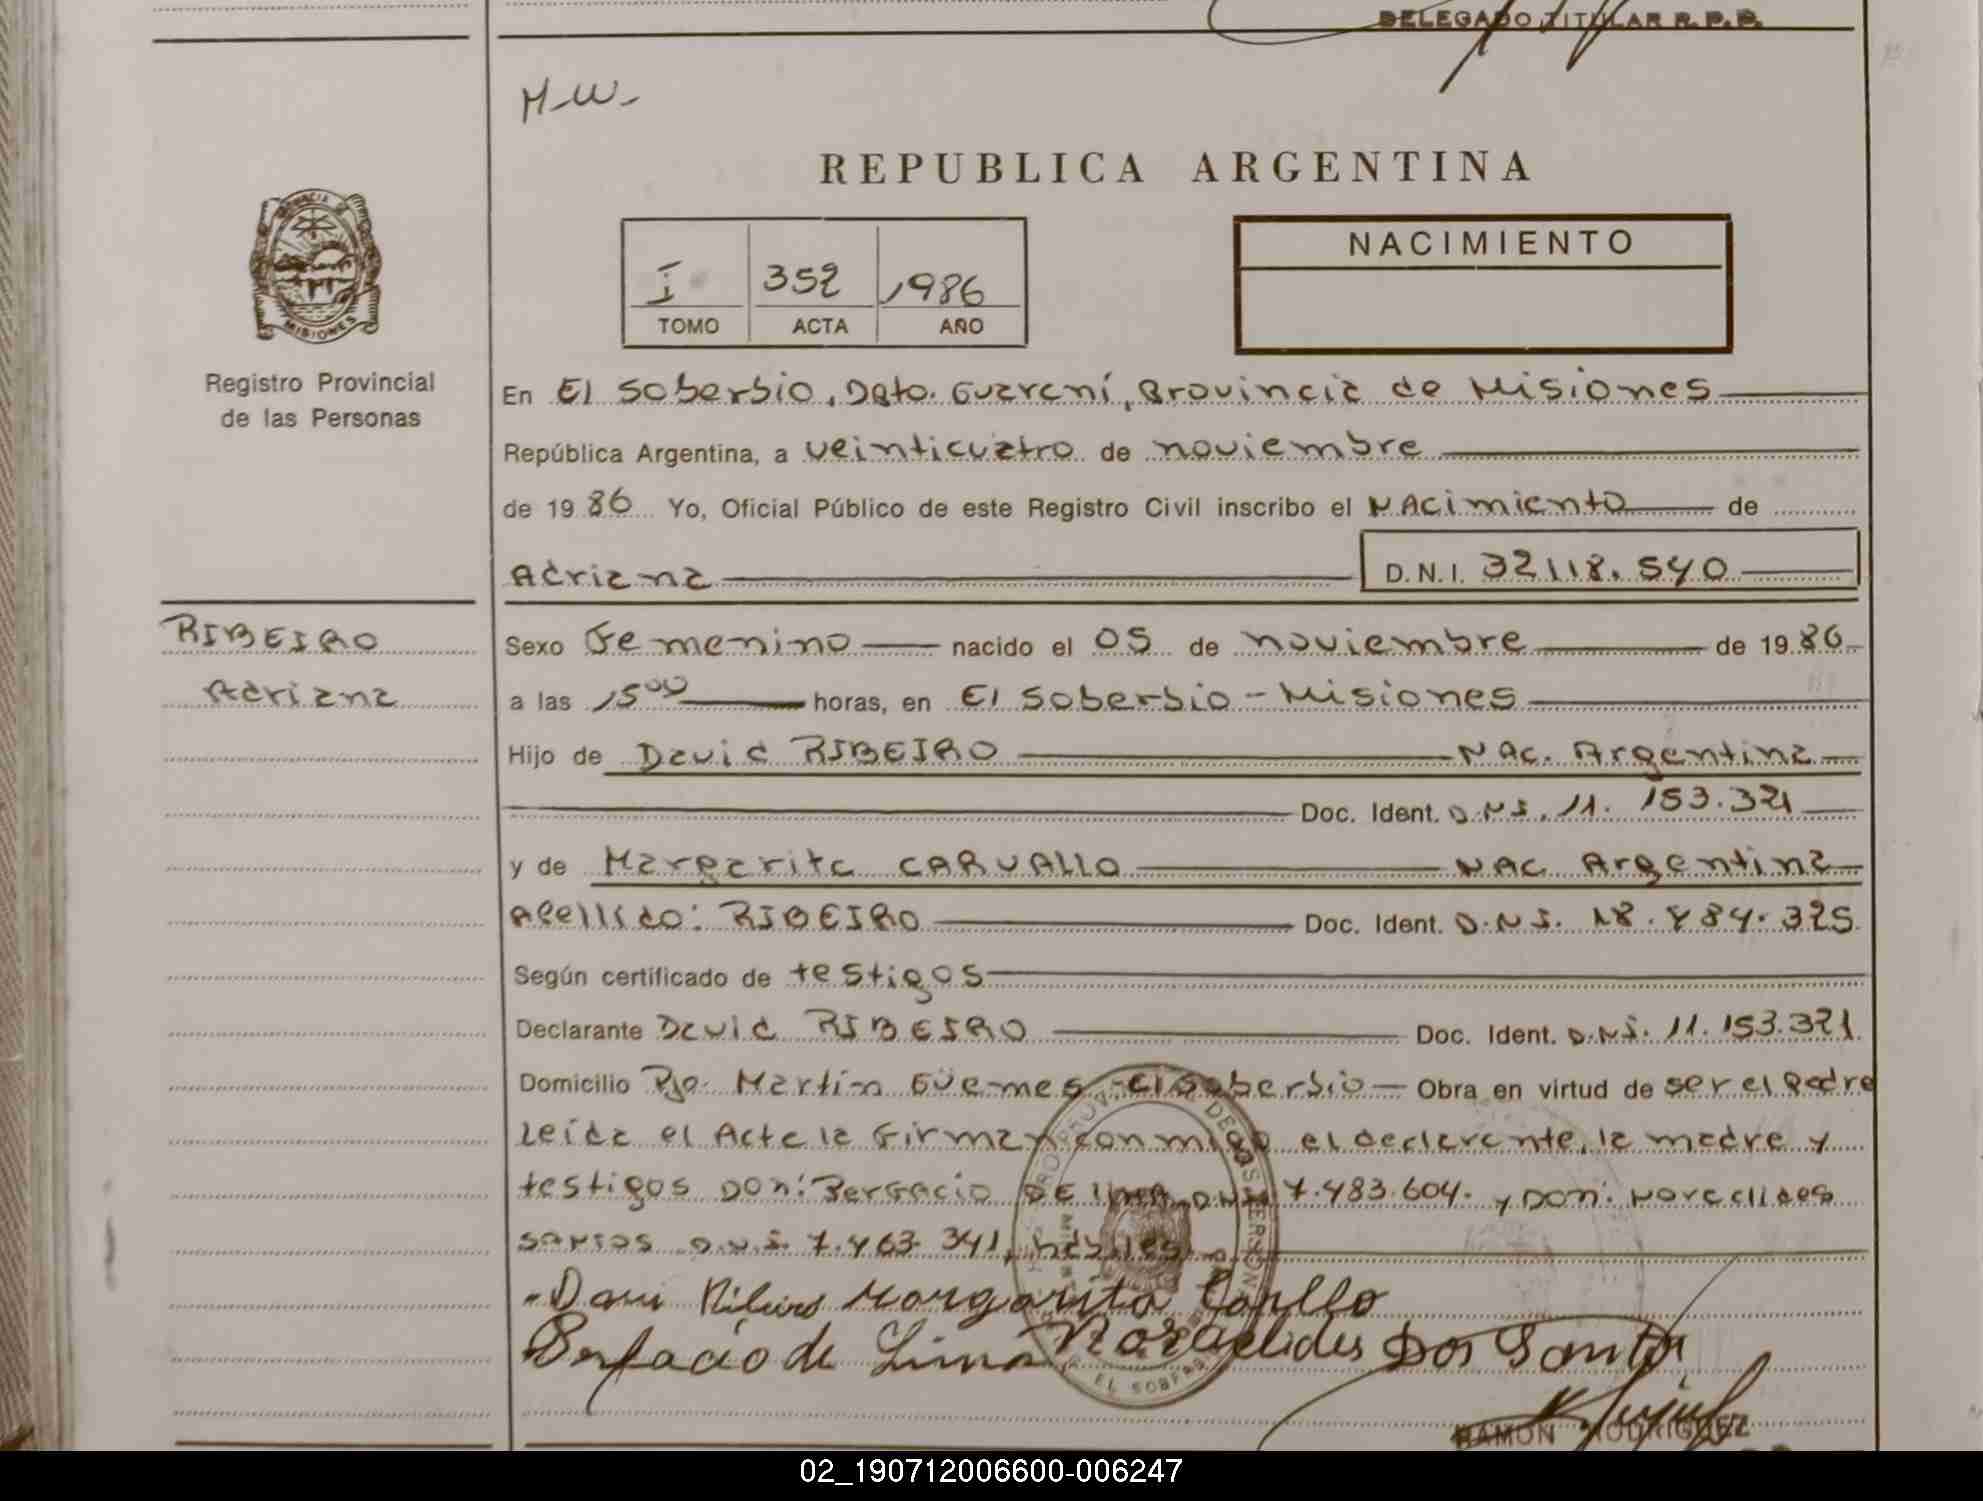 DELEGADO TITULAR R. P. P.
M-W-
REPUBLICA ARGENTINA
MISIONES
Registro Provincial
de las Personas
I 352 1986
TOMO ACTA AÑO
NACIMIENTO
En El Soberbio, Dpto. Guarani, Provincia de Misiones
República Argentina, a veinticuatro de noviembre
de 19 86 Yo, Oficial Público de este Registro Civil inscribo el NAcimiento de
Adriana D.N.I. 32118.540
RIBEIRO
Adriana
Sexo Femenino nacido el 05 de noviembre de 19 86
a las 15⁰⁰ horas, en El Soberbio - Misiones
Hijo de David RIBEIRO NAc. Argentina
Doc. Ident. D.N.I. 11. 153.321
y de Margarita CARVALLO NAC Argentina
Apellido: RIBEIRO Doc. Ident. D.N.I. 18.884.325
Según certificado de testigos
Declarante David RIBEIRO Doc. Ident. D.N.I. 11.153.321
Domicilio Pje. Martín Güemes - El Soberbio Obra en virtud de ser el Padre
Leida el Acta la Firman conmigo el declarante, la madre y
testigos Don: DE LIMA D.N.I. 7.483.604. y Don:
D.N.I. 7.463.341, hábiles
Margarita
de Lima Dos Santo
EL SOBERBIO
RAMON RODRIGUEZ
02_190712006600-006247